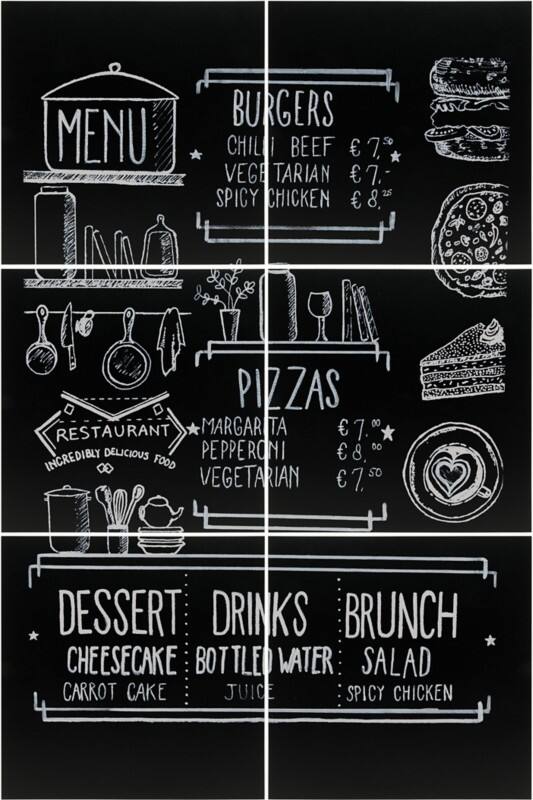 MENU
BURGERS
CHILLI BEEF € 7,50
VEGETARIAN € 7,-
SPICY CHICKEN € 8,25
PIZZAS
MARGARITA € 7,00
PEPPERONI € 8,00
VEGETARIAN € 7,50
RESTAURANT
INCREDIBLY DELICIOUS FOOD
DESSERT
CHEESECAKE
CARROT CAKE
DRINKS
BOTTLED WATER
JUICE
BRUNCH
SALAD
SPICY CHICKEN